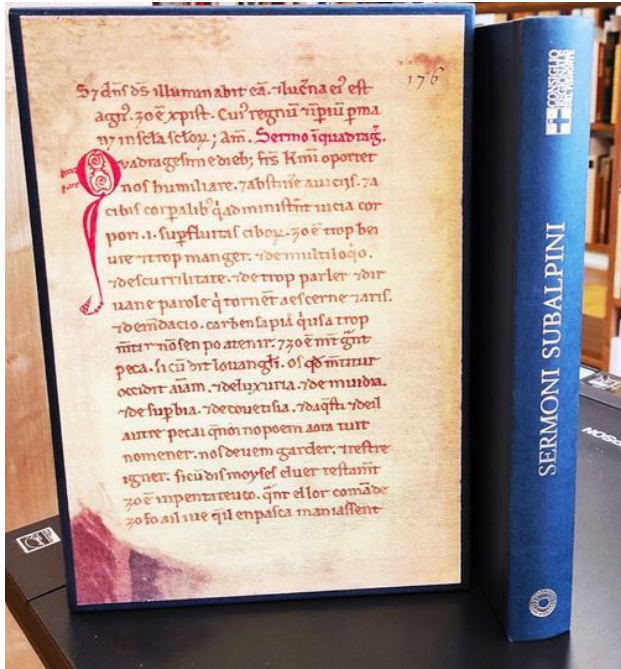 176
Sꝫ dñs ds illuminabit eã. ⁊ luc̃na ei᷒ est
agn᷒. zo ẽ xpist. Cui᷒ regnũ ⁊ ĩpiũ pma
nꝫ in sc̃la sc̃loꝝ; am̃. Sermo ĩ quadrag̃.
Quadragesime dieb; frs Kmi oportet
nos humiliare. ⁊ abstinẽ a uiciis. ⁊ a
cibis corpalib᷒ q̇ administr̃nt uicia cor
pori .i. supfluitas ciboꝝ. zo ẽ trop bei
ure ⁊ trop manger. ⁊ de multiloq̇o.
⁊ de scurrilitate. ⁊ de trop parler ⁊ dir
uane parole q̇ tornẽt a escerne ⁊ a ris.
⁊ de m̃dacio. car ben sapiá q̇ usa trop
m̃tir nõ sen po atenir. ⁊ zo ẽ mt̃ gñt
peca. sicũ dit louangl̃i. Os qd̃ m̃titur
occidit aĩam. ⁊ de luxuria. ⁊ de inuidia.
⁊ de supbia. ⁊ de couetisia. ⁊ daq̃sti ⁊ deil
autre pecai q̃ noi no poem aora tuit
nomener. nos deuem garder. ⁊ restre
igner. sicũ dis moyses el uer testam̃t
zo ẽ in pentateuco. q̃nt el lor comãde
zo fo ail iue q̇ il en pasca maniassent
CONSIGLIO
REGIONALE
DEL PIEMONTE
SERMONI SUBALPINI